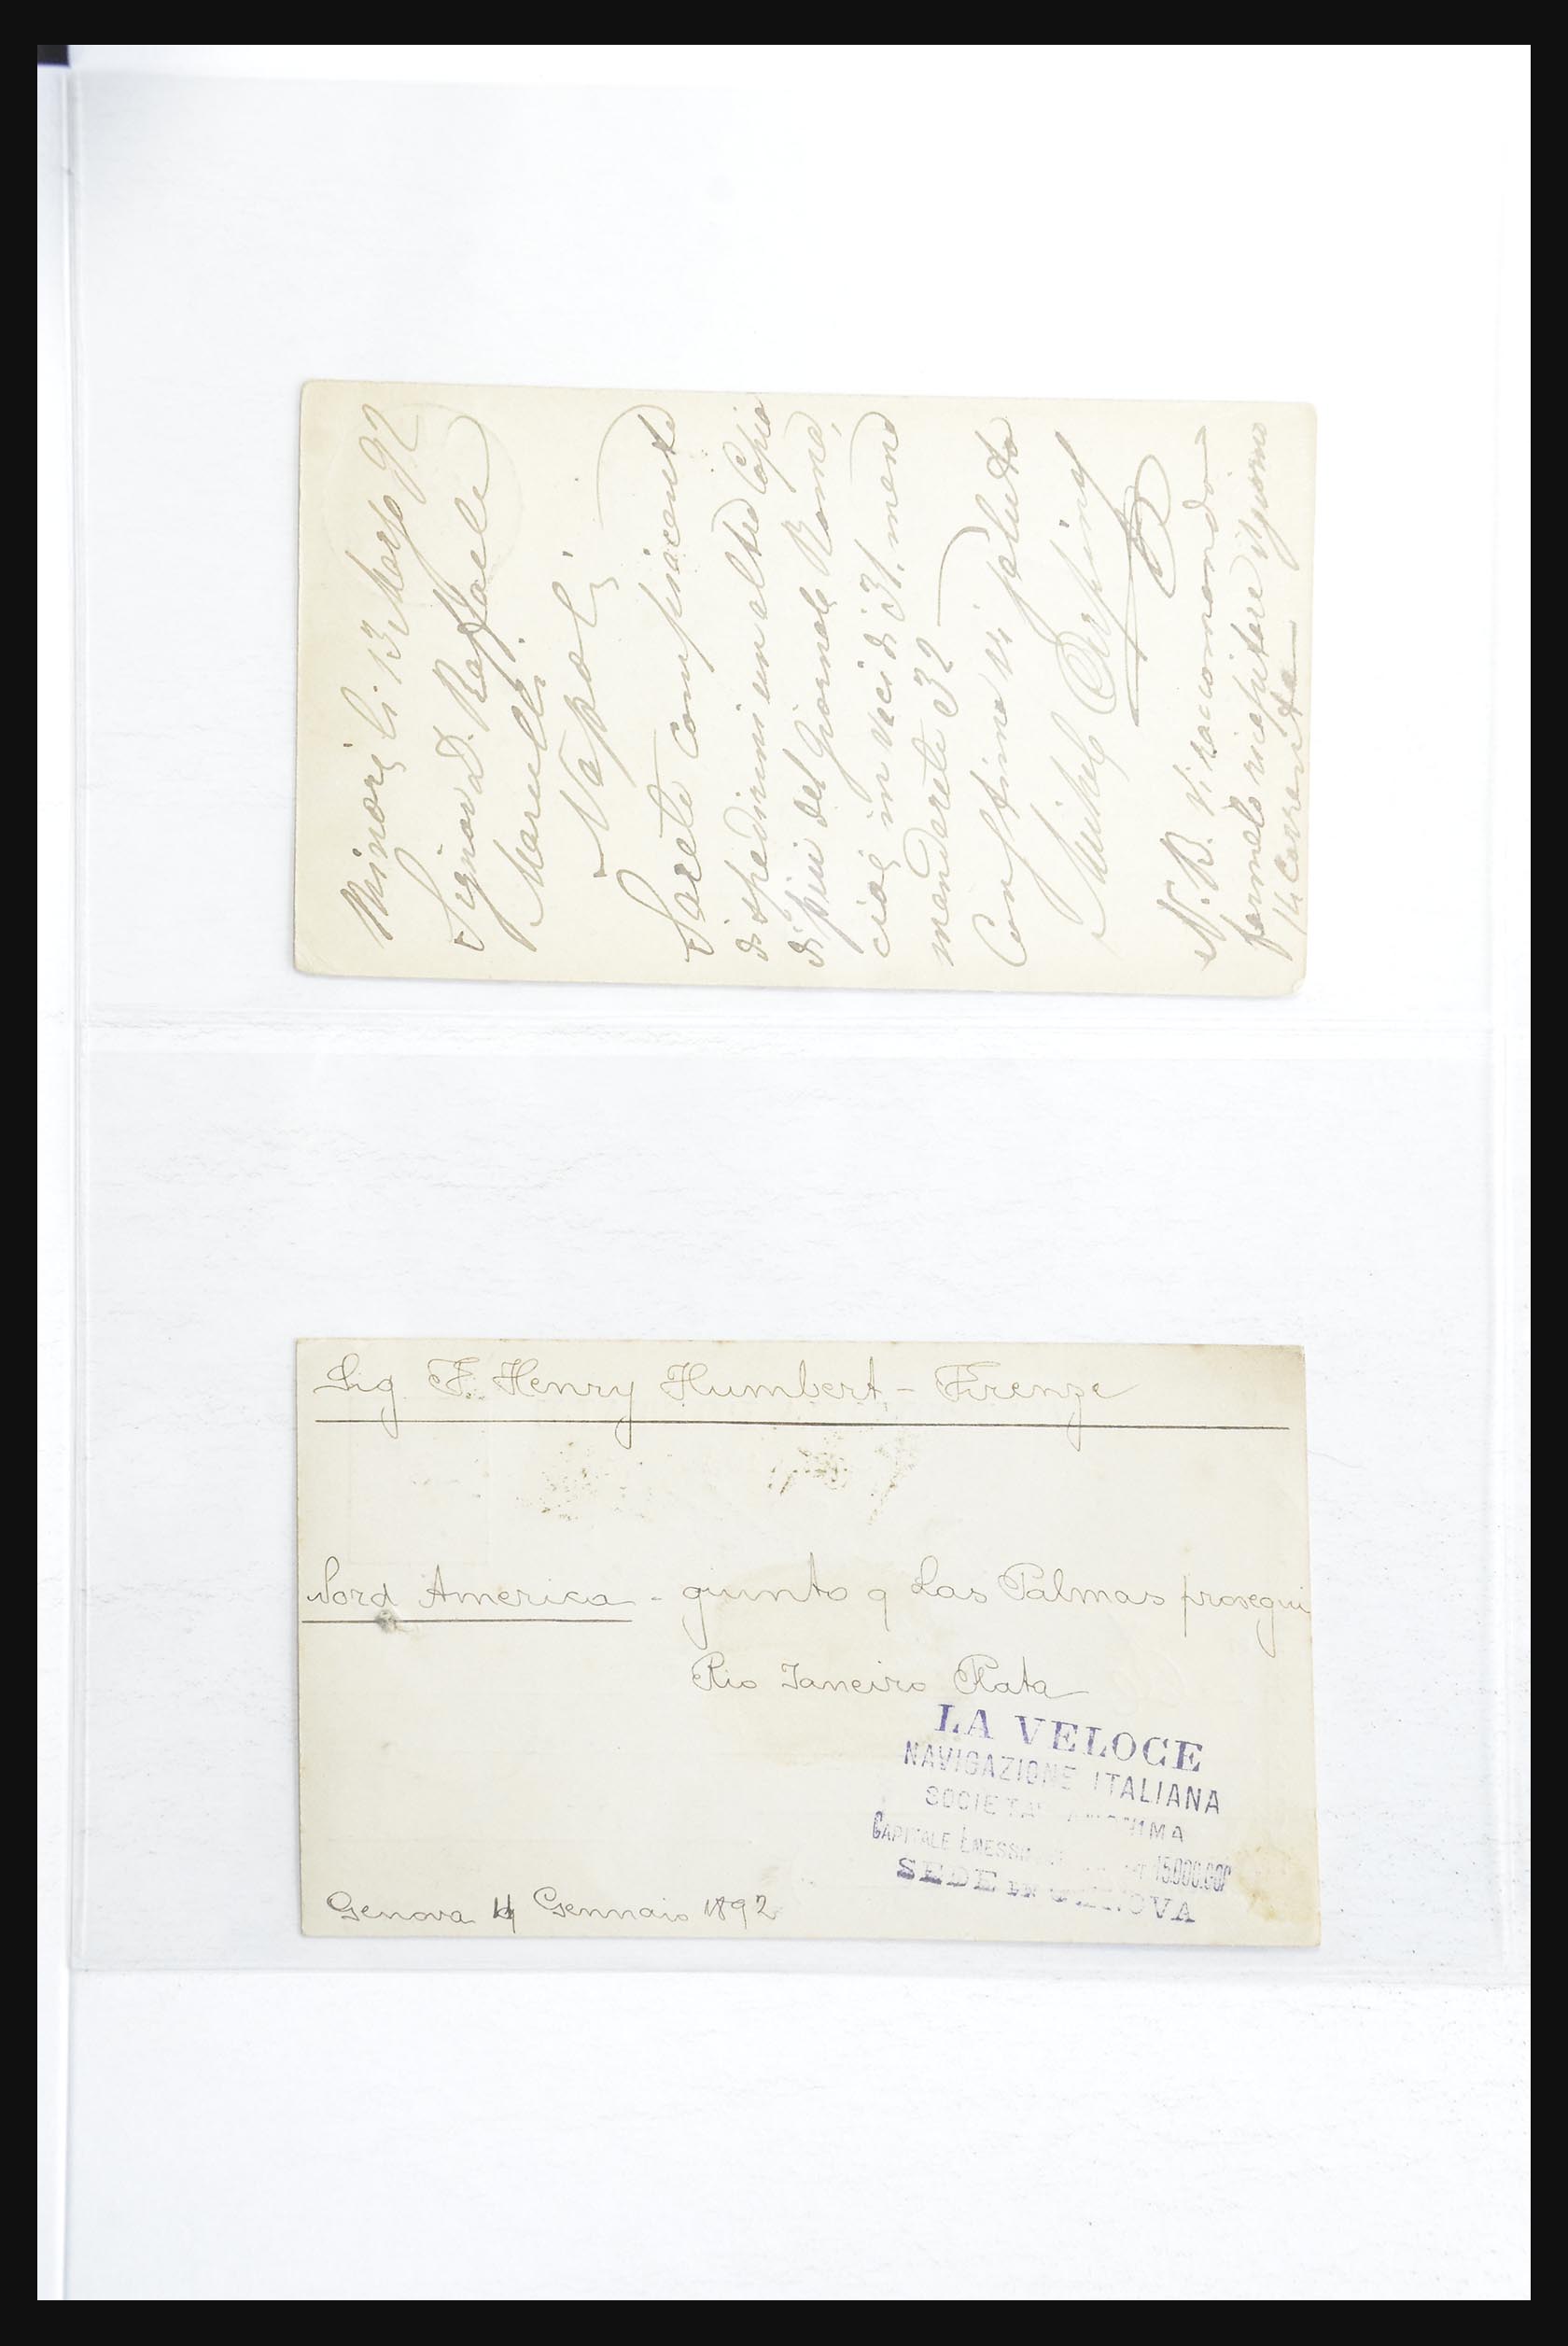 Minori li 13 Marzo 92
Signor D. Raffaele
Marulli
Napoli
Sarete compiacente
di spedirmi un altra Copia
di più del Giornale Roma,
cioè in veci di 31, mend
manderete 32
Con stima vi saluto
Michele
N. B. Vi raccomando
farmelo ricapitare il giorno
14 Corrente
Sig F. Henry Humbert - Firenze
Nord America - giunto 9 Las Palmas prosegui
Rio Janeiro Plata
LA VELOCE
NAVIGAZIONE ITALIANA
SOCIETA'
CAPITALE EMESSO 15.000.000
SEDE IN GENOVA
Genova Gennaio 1892